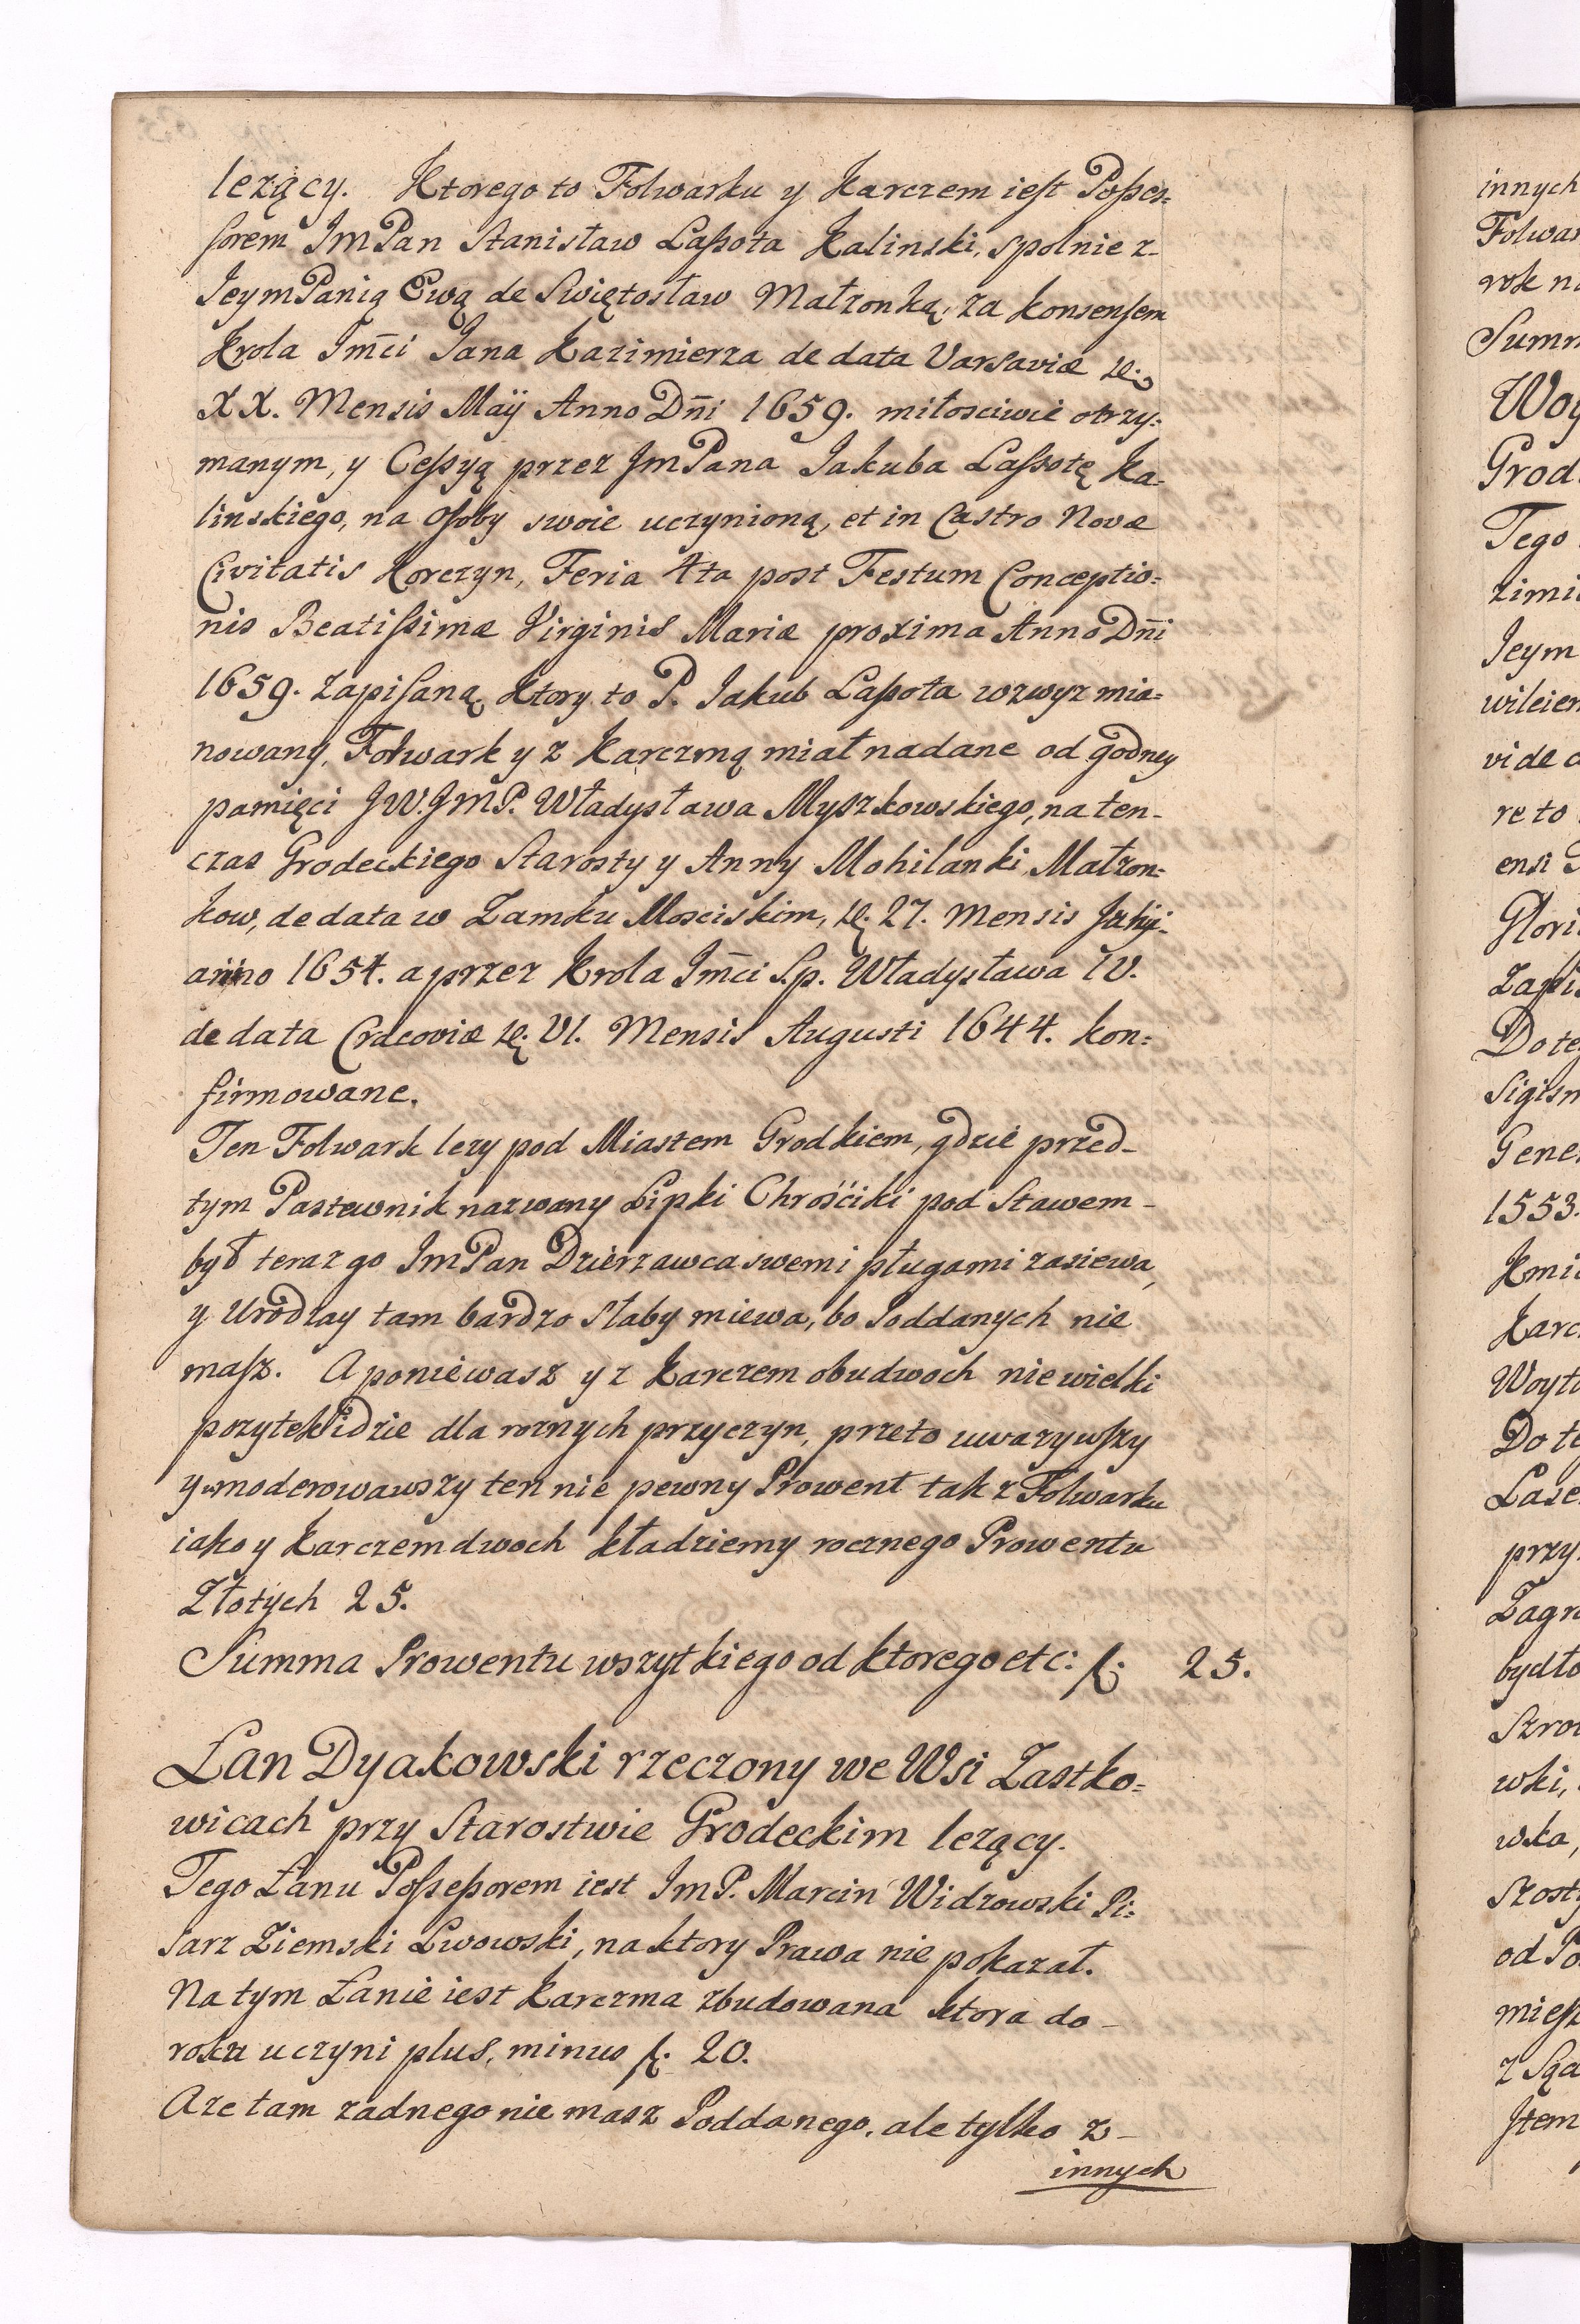 lezący. Ktorego to Folwarku y Karczem iest Posses=
sorem JmPan Stanisław Lassota Kalinski, spolnie z-
JeymPanią Ewą de Swiętosław Małzonką, za konsensem
Krola Jm̄ci Jana Kazimierza de data Varsaviæ
XX. Mensis Maÿ Anno Dn̄i 1659. miłosciwie otrzy=
manym, y Cessyą przez JmPana Jakuba Lassotę Ka-
linskiego, na Osoby swoie uczynioną, et in Castro Novæ
Civitatis Korczyn, Feria 4ta post Festum Conceptio=
nis Beatissimæ Virginis Mariæ proxima Anno Dn̄i
1659. zapisaną, Ktory to P. Jakub Lassota wzwyz mia=
nowany, Folwark y z Karczmą miał nadane od godney
pamięci JW.JMP. Władysława Myszkowskiego, na ten-
czas Grodeckiego Starosty y Anny Mohilanki, Małzon=
kow, de data w Zamku Mosciskim, 27. Mensis
anno 1654. a przez Krola Jm̄ci S.p. Władysława IV.
de data Cracoviæ VI. Mensis Augusti 1644. kon=
firmowane.
Ten Folwark lezy pod Miastem Grodkiem, gdzie przed-
tym Pastewnik nazwany Lipki Chrościki pod Stawem-
był teraz go JmPan Dzierzawca swemi pługami zasiewa,
y Urodzay tam bardzo słaby miewa, bo Poddanych nie
masz. A poniewasz y z Karczem obudwoch niewielki
pozytek idzie dla roznych przyczyn, przeto uwazywszy
y moderowawszy ten nie pewny Prowent tak z Folwarku
iako y Karczem dwoch kładziemy rocznego Prowentu
Złotych 25.
Summa Prowentu wszytkiego od ktorego etc: f. 25.
Łan Dyakowski rzeczony we Wsi Zastko=
wicach przy Starostwie Grodeckim lezący.
Tego Łanu Possessorem iest JmP. Marcin Widzowski Pi=
sarz Ziemski Lwowski, na ktory Prawa nie pokazał.
Na tym Łanie iest Karczma zbudowana ktora do-
roku uczyni plus, minus f. 20.
A ze tam zadnego nie masz Poddanego, ale tylko z-
innych
innych
Folwar
rok n
Summ
Woy
Grod
Tego
zimi
Jeym
wileien
vide
re to
ensi
Glori
Zapi
Do te
Sigism
Gene
1553.
Kmi
Karc
Woyt
Do te
Lase
przy
Zagr
bydło
Szro
wki,
wka,
szosty
od Po
miesz
z Są
Jtem